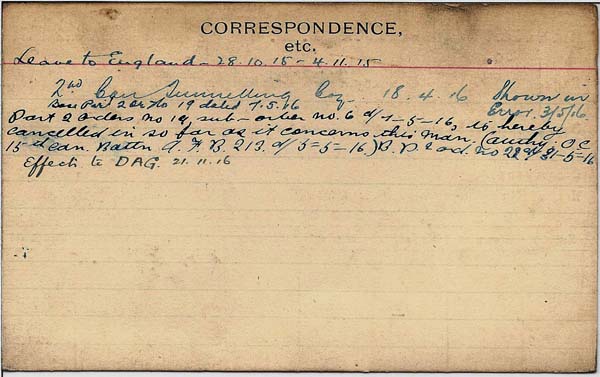 CORRESPONDENCE,
etc.
Leave to England - 28.10.15 - 4.11.15
2nd Can Tunnelling Coy 18.4.16 Shown in
Error. 3/5/16.
Can Part 2 Or No 19 dated 7.5.16
Part 2 orders No 19, sub-order no. 6 d/7-5-16, is hereby
cancelled in so far as it concerns this man. (Authy. O C
15th Can. Battn A. F. B. 213. d/5-5-16.) B. P. 2 Ord. no 22 d/31-5-16
Effects to DAG. 21.11.16